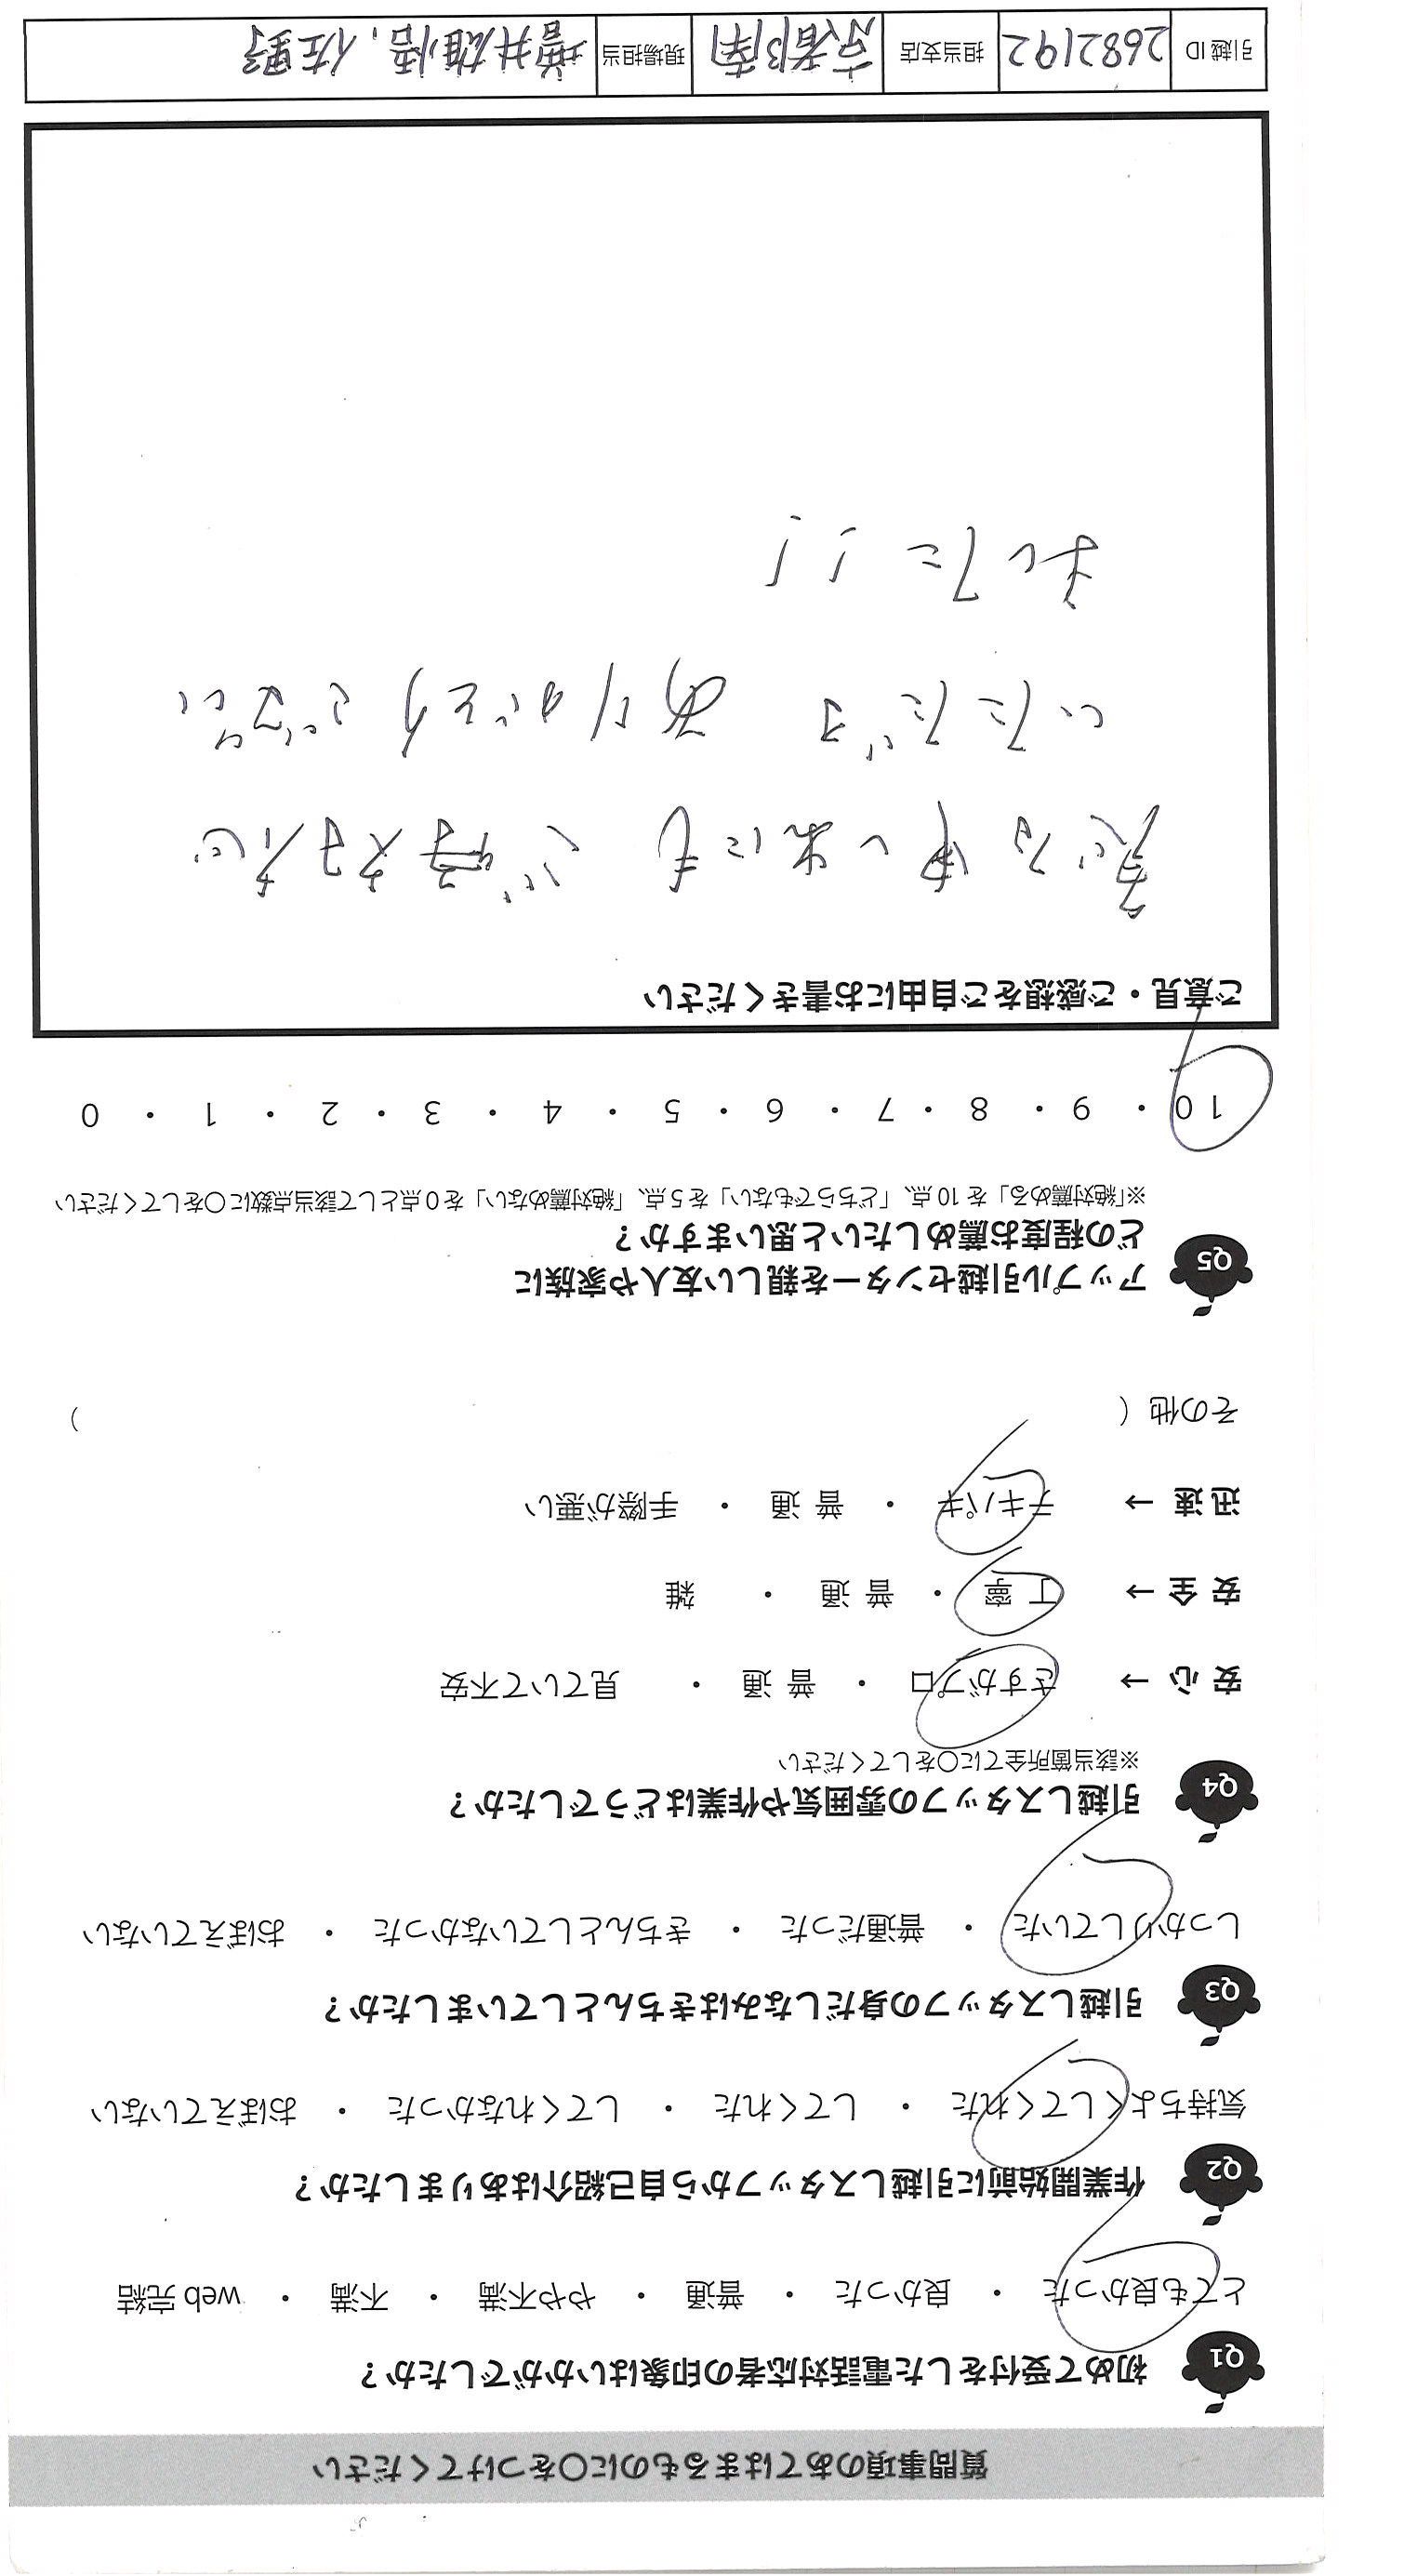 質問事項のあてはまるものに〇をつけてください
Q1 初めて受付をした電話対応者の印象はいかがでしたか？
とても良かった ・ 良かった ・ 普通 ・ やや不満 ・ 不満 ・ web 完結
Q2 作業開始前に引越しスタッフから自己紹介はありましたか？
気持ちよくしてくれた ・ してくれた ・ してくれなかった ・ おぼえていない
Q3 引越しスタッフの身だしなみはきちんとしていましたか？
しっかりしていた ・ 普通だった ・ きちんとしていなかった ・ おぼえていない
Q4 引越しスタッフの雰囲気や作業はどうでしたか？
※該当箇所全てに〇をしてください
安心 → さすがプロ ・ 普通 ・ 見ていて不安
安全 → 丁寧 ・ 普通 ・ 雑
迅速 → テキパキ ・ 普通 ・ 手際が悪い
その他（ ）
Q5 アップル引越センターを親しい友人や家族に
どの程度お薦めしたいと思いますか？
※「絶対薦める」を 10 点、「どちらでもない」を 5 点、「絶対薦めない」を 0 点として該当点数に〇をしてください
10 ・ 9 ・ 8 ・ 7 ・ 6 ・ 5 ・ 4 ・ 3 ・ 2 ・ 1 ・ 0
ご意見・ご感想をご自由にお書きください
急な申し出にも ご
いただき ありがとうござい
ました！！
引越 ID 2682192 担当支店 京都南 現場担当 増井雄悟、佐野